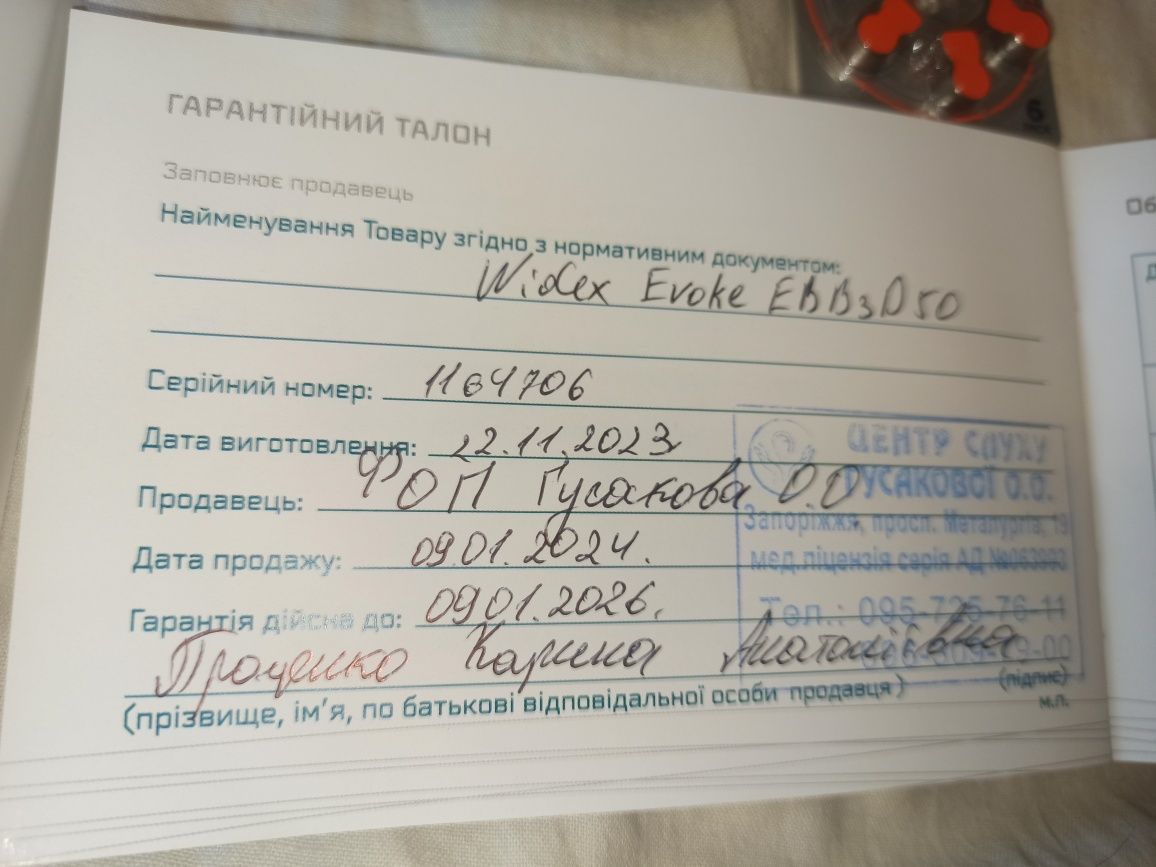 ГАРАНТІЙНИЙ ТАЛОН
Заповнює продавець
Найменування Товару згідно з нормативним документом:
Widex Evoke EBB3D 50
Серійний номер: 1164706
Дата виготовлення: 22.11.2023
Продавець: ФОП Гусакова О.О
Дата продажу: 09.01.2024.
Гарантія дійсна до: 09.01.2026.
Проценко Карина Анатоліївна
(прізвище, ім'я, по батькові відповідальної особи продавця)
(підпис)
м.п.
ЦЕНТР СЛУХУ
ГУСАКОВОЇ О.О.
Запоріжжя, просп. Металургів, 19
мед.ліцензія серія АД
Тел.: 095-725-76-11
Об
6